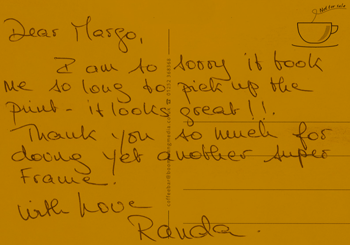 Not for sale
Dear Margo,
I am so sorry it took
me so long to pick up the
print - it looks great!!
Thank you so much for
doing yet another super
Frame.
with love
Randa.